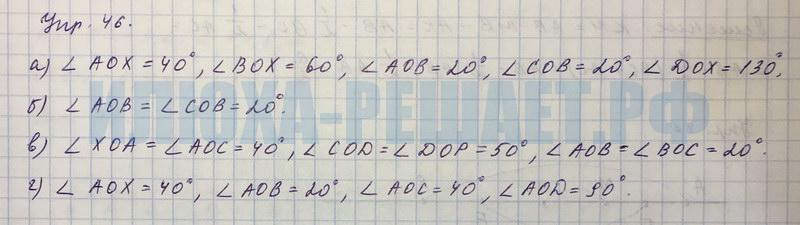 Упр. 46.
а) ∠ AOX = 40°, ∠ BOX = 60°, ∠ AOB = 20°, ∠ COB = 20°, ∠ DOX = 130°.
б) ∠ AOB = ∠ COB = 20°.
в) ∠ XOA = ∠ AOC = 40°, ∠ COD = ∠ DOP = 50°, ∠ AOB = ∠ BOC = 20°.
г) ∠ AOX = 40°, ∠ AOB = 20°, ∠ AOC = 40°, ∠ AOD = 90°.
ИЛЮХА-РЕШАЕТ.РФ